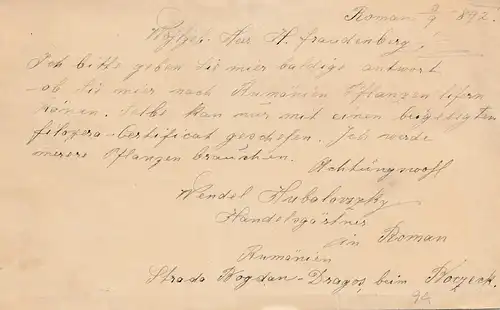 Roman 9/9 892.
Wohlgel. Herr H. fraudenberg,!
Ich bitte geben Sie mier baldige antwort
ob Sie mier nach Rumänien Pflanzen lifern
könen. Selbe kan nur mit einen beigelegten
filoxera-Certificat geschefen. Ich werde
merere Pflanzen brauchen.
Achtungsvohl
Wendel Hubalovzky
Handelsgärtner
in Roman
Rumänien
Strada Bogdan-Dragos, beim
94